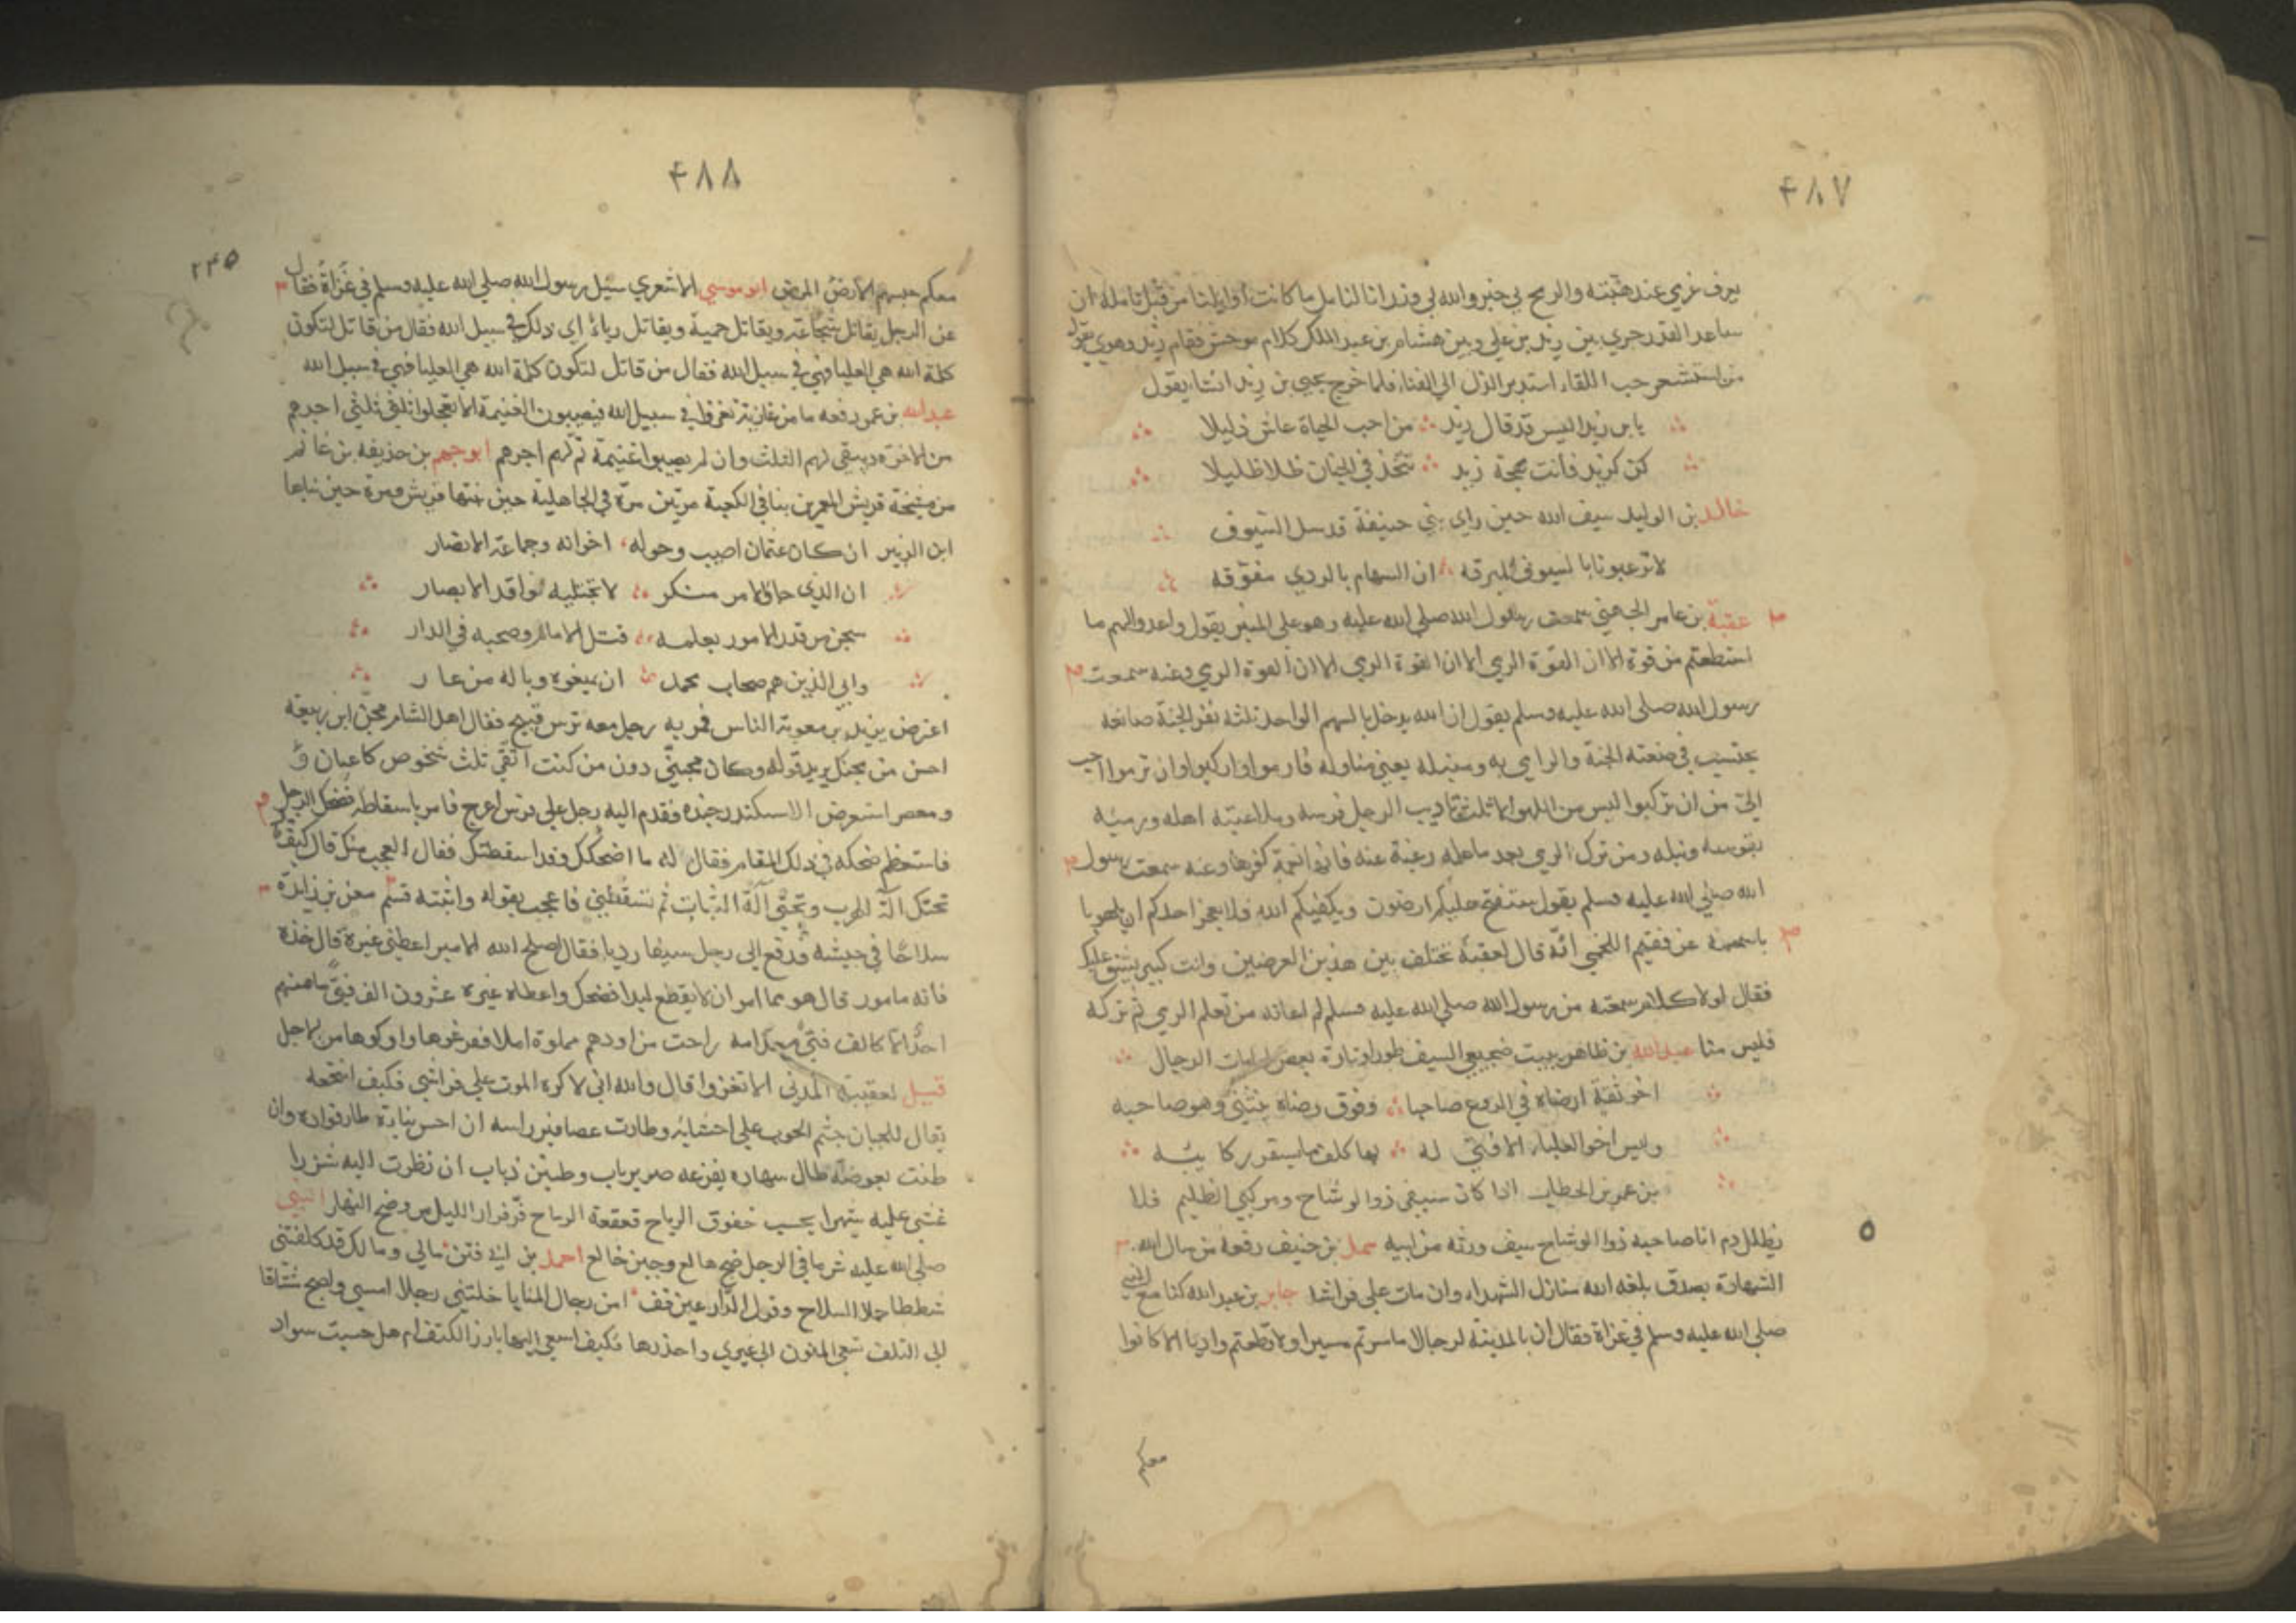 ٤٨٧
يعرف غربي عند هتبته والريح بي خبر والله لي وندرانا لنامل ما كانت اوايلنا من قبل تامله ان
ساعد القدر جري بين زيد بن علي وبين هشام بن عبد الملك كلام موحش فقام زيد وهو يقول
من استشعر حب اللقاء استدبر الذل الي الفناء فلما خرج يحيى بن زيد انشاء يقول
يا بن زيد اليس قد قال زيد من احب الحياة عاش ذليلا
كن كزيد فانت مهجة زيد تتخذ في الجنان ظلا ظليلا
خالد بن الوليد سيف الله حين راي بني حنيفة قد سل السيوف
لا ترعبونا بالسيوف المبرقه ان السهام بالردي مفوقه
عقبة بن عامر الجهني سمعت رسول الله صلي الله عليه وهو علي المنبر يقول واعدوا لهم ما
استطعتم من قوة الا ان القوة الرمي الا ان القوة الرمي الا ان القوة الرمي وعنه سمعت
رسول الله صلي الله عليه وسلم يقول ان الله يدخل بالسهم الواحد ثلثة نفر الجنة صانعه
يحتسب في صنعته الجنة والرامي به ومنبله يعني مناوله فارموا واركبوا وان ترموا احب
الي من ان تركبوا ليس من اللهو الا ثلث تاديب الرجل فرسه وملاعبته اهله ورميه
بقوسه ونبله ومن ترك الرمي بعد ما علمه رغبة عنه فانها نعمة كفرها وعنه سمعت رسول
الله صلي الله عليه وسلم يقول ستفتح عليكم ارضون ويكفيكم الله فلا يعجز احدكم ان يلهو با
باسهمه عن فقيم اللخمي انه قال لعقبة تختلف بين هذين الغرضين وانت كبير يشق عليك
فقال لولا كلام سمعته من رسول الله صلي الله عليه وسلم لم اعانه من تعلم الرمي ثم تركه
فليس منا عبد الله بن طاهر يبيت ضجيعي السيف طورا وتارة بعض لهامات الرجال
اخو ثقة ارضاه في الروع صاحبا وفوق رضاه يثنني وهو صاحبه
وليس اخو العلياء الا فتي له بها كلف ما يستقر ركايبه
بن عمر بن الخطاب اذا كان سيفي ذو الوشاح ومركبي الظليم فلا
يطلل دم انا صاحبه ذو الوشاح سيف ورثه من ابيه سهل بن حنيف رفعه من سال الله
الشهادة بصدق بلغه الله منازل الشهداء وان مات علي فراشه جابر بن عبد الله كنا مع النبي
صلي الله عليه وسلم في غزاة فقال ان بالمدينة لرجالا ما سرتم مسيرا ولا قطعتم واديا الا كانوا
معكم
٤٨٨
٢٤٥
معكم حبسهم المرض ابو موسي الاشعري سئل رسول الله صلي الله عليه وسلم في غزاة فقال
عن الرجل يقاتل شجاعة ويقاتل حمية ويقاتل رياء اي ذلك في سبيل الله فقال من قاتل لتكون
كلمة الله هي العليا فهي في سبيل الله فقال من قاتل لتكون كلمة الله هي العليا فهي في سبيل الله
عبد الله بن عمر رفعه ما من غازية تغزوا في سبيل الله فيصيبون الغنيمة الا تعجلوا ثلثي اجرهم
من الاخرة ويبقي لهم الثلث وان لم يصيبوا غنيمة تم لهم اجرهم ابو جهم بن حذيفة بن غانم
من مشيخة قريش المعمرين بنا في الكعبة مرتين مرة في الجاهلية حين بنتها قريش ومرة حين بناها
ابن الزبير ان كان عثمان اصيب وحوله اخوانه وجماعة الانصار
ان الذي حاق الامر منكر لا تجتليه نواقد الابصار
سبحن من قدر الامور بعلمه قتل الامام وصحبه في الدار
وابي الذين هم صحاب محمد ان يبغوه وباله من عار
اعترض يزيد بن معوية الناس فمر به رجل معه ترس قبيح فقال اهل الشام مجن ابن ربيعة
احسن من مجنك يريد قوله وكان مجني دون من كنت اتقي ثلث شخوص كاعبان و
ومعصر استعرض الاسكندر جنده فقدم اليه رجل علي فرس اعرج فامر باسقاطه فضحك الرجل
فاستعظم ضحكه في ذلك المقام فقال له ما اضحكك وقد اسقطتك فقال العجب منك قال كيف
تحتك الة الهرب وتحتي الة الثبات ثم تسقطني فاعجب بقوله واثبته قسم معن بن زايدة
سلاحا في جيشه فدفع الي رجل سيفا رديا فقال اصلح الله الامير اعطني غيره قال خذه
فانه مامور قال هو مما امر ان لا يقطع ابدا فضحك واعطاه غيره عشرون الف فتي ما منهم
احد الا كالف فتي مجدامه راحت مزاودهم مملوة املا ففرغوها واوكوها من الاجل
قيل لعقيبة المدني الا تغزوا قال والله اني لاكره الموت علي فراشي فكيف انتجعه
يقال للجبان جثم الخوف علي احشايه وطارت عصافير راسه ان احس نباءة طار فواده وان
طنت بعوضة طال سهاده يفزعه صرير باب وطنين ذباب ان نظرت اليه شزرا
غشي عليه شهرا يحسب خفوق الرياح قعقعة الرماح فر فرار الليل من وضح النهار النبي
صلي الله عليه شر ما في الرجل شح هالع وجبن خالع احمد بن ابي فنن مالي ومالك قد كلفتني
شططا حمل السلاح وقول الدارعين قف امن رجال المنايا خلتني رجلا امسي واصبح مشتاقا
الي التلف تمشي المنون الي غيري واحذرها فكيف اسعي اليها بارز الكتف ام هل حسبت سواد